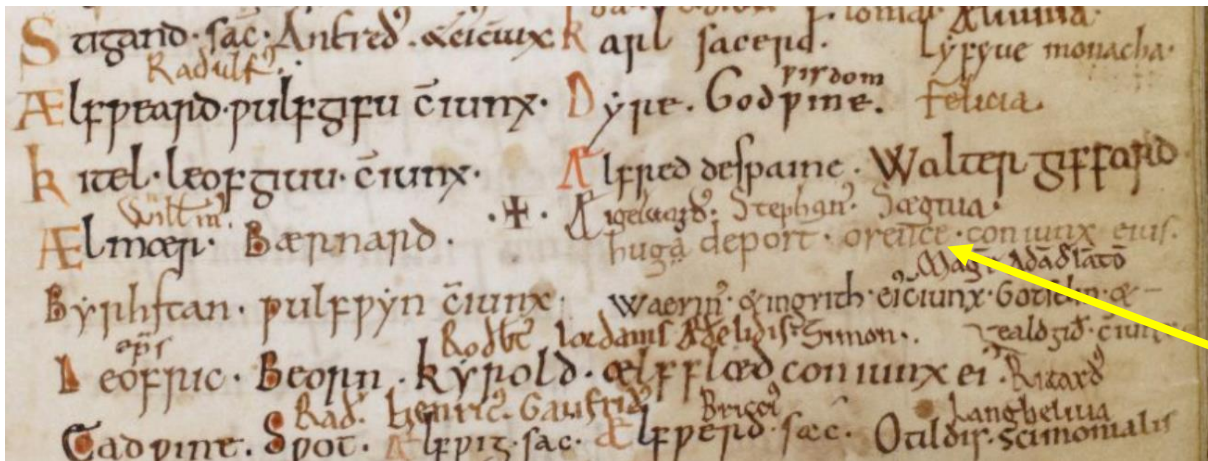 Stigand · sac̄ · Anfred᷒ · &ci c̄iux Karl sacerd. Lyfyue monacha·
Radulf᷒ ƿirdom
Ælfƿeard · ƿulfgifu c̄iunx · Dyre · Godƿine · felicia
Kitel · leofgiuu · c̄iunx · Ælfred despaine · Walter giffard
Willm᷒ · Ægelward᷒ · Stephan᷒ · Sægiua ·
Ælmær · Bærnard · ·+· huga deport · oreuce · coniunx eius ·
Byrhstan · ƿulfƿyn c̄iunx · Waerin᷒ · & ingrith · ei᷒ c̄iunx · Gotselin · & –
ep̄s Rodb̄t Iordanis Adelidis · Simon · ealdgið · c̄iunx
Leofric · Beorn · kyrold · ælfflæd coniunx ei᷒ · Ricard᷒
Rad᷒ · henric᷒ · Gaufrid᷒ Langbeliua
Eadƿine · Spot · Ælfƿig · sac̄ · Ælfƿerd · sac̄ · Otildis · sc̄imonialis